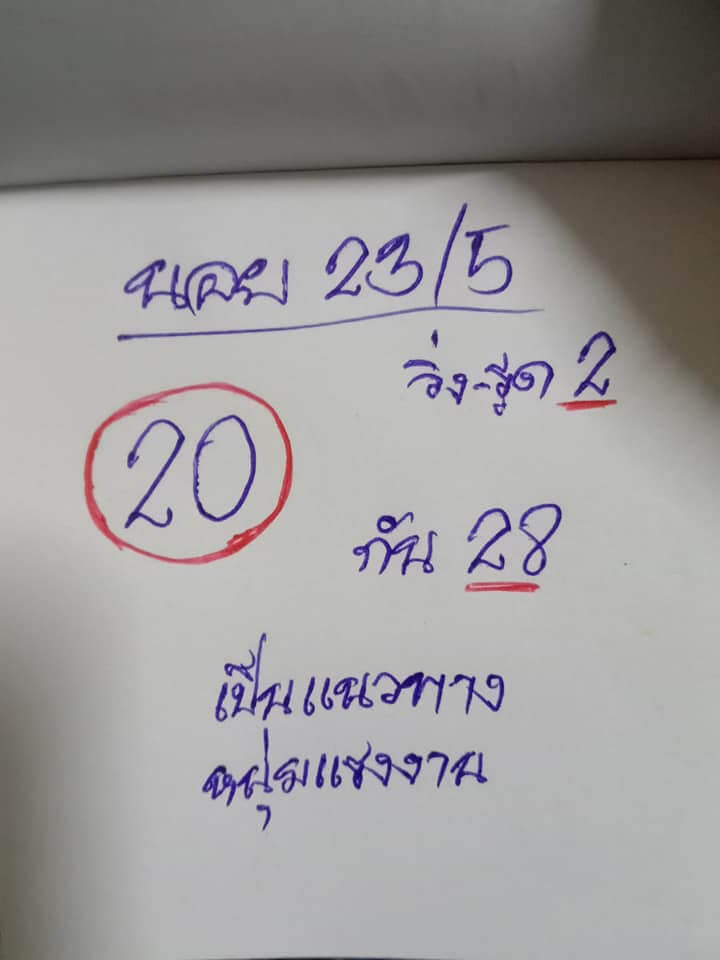 นอย 23/5
วิ่ง-รูด 2
20
กัน 28
เป็นแนวทาง
หนุ่มแซงงาน